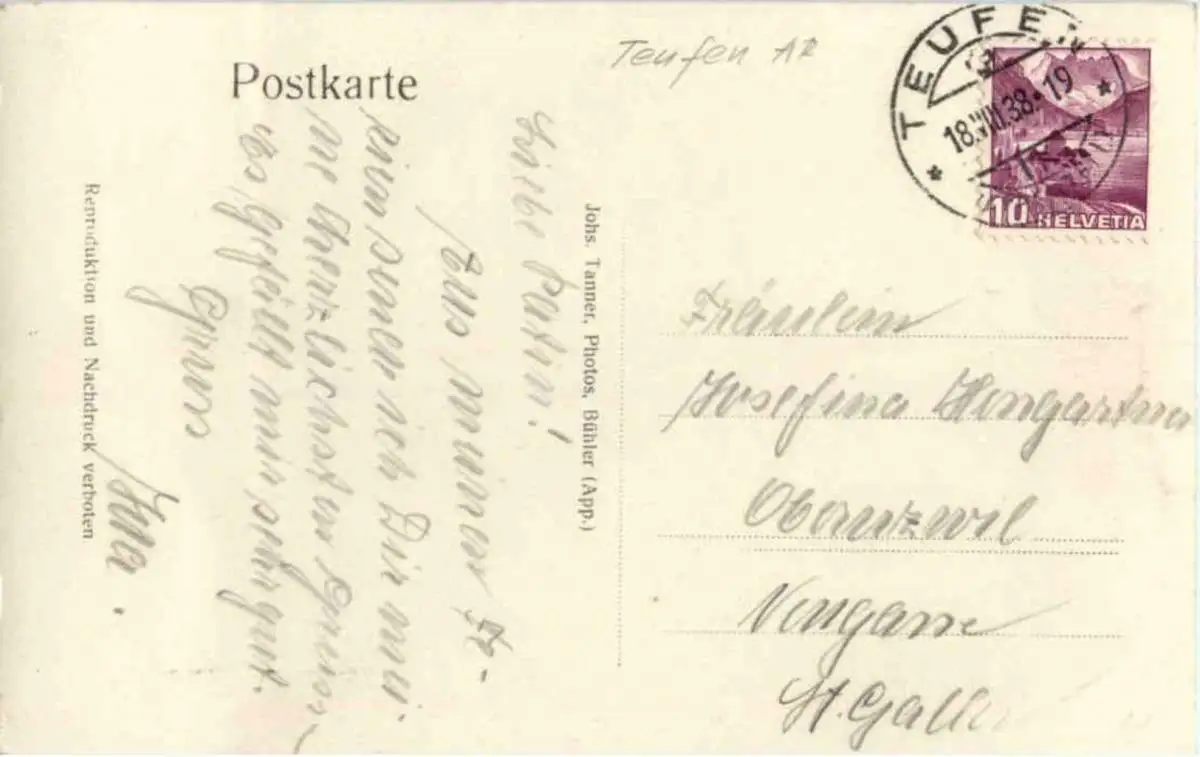 Postkarte
Teufen AR
TEUFEN
18.VIII.38.-19
10 HELVETIA
Liebe Patin!
Aus meiner
sende ich Dir mei-
ne herzlichsten Grüsse
es gefällt mir sehr gut.
Gruss
Johs. Tanner, Photos, Bühler (App.)
Reproduktion und Nachdruck verboten
Fräulein
Josefina Hengartner
Oberuzwil
Neugasse
St. Gallen